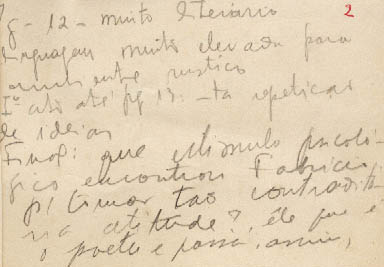 2
g - 12 - muito literário
linguagem muito elevada para
ambiente rústico
Iº ato até pg 13: - ta repetição
de ideias
Final: que estímulo psicoló-
gico encontrou Fabrício
p/ tomar tão contraditó-
ria atitude?, êle que é
o poeta e passa, assim,